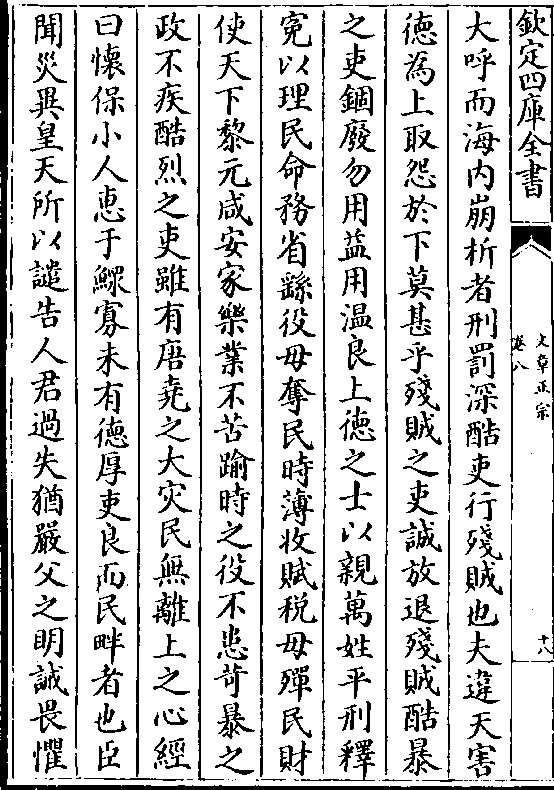 欽定四庫全書
文章正宗
卷八
十八
大呼而海内崩析者刑罰深酷吏行殘賊也夫違天害
徳為上取怨於下莫甚乎殘賊之吏誠放退殘賊酷暴
之吏錮廢勿用益用温良上徳之士以親萬姓平刑釋
寃以理民命務省繇役毋奪民時薄收賦税毋殫民財
使天下黎元咸安家樂業不苦踰時之役不患苛暴之
政不疾酷烈之吏雖有唐堯之大灾民無離上之心經
曰懐保小人恵于鰥寡未有徳厚吏良而民畔者也臣
聞災異皇天所以譴告人君過失猶嚴父之明誠畏懼